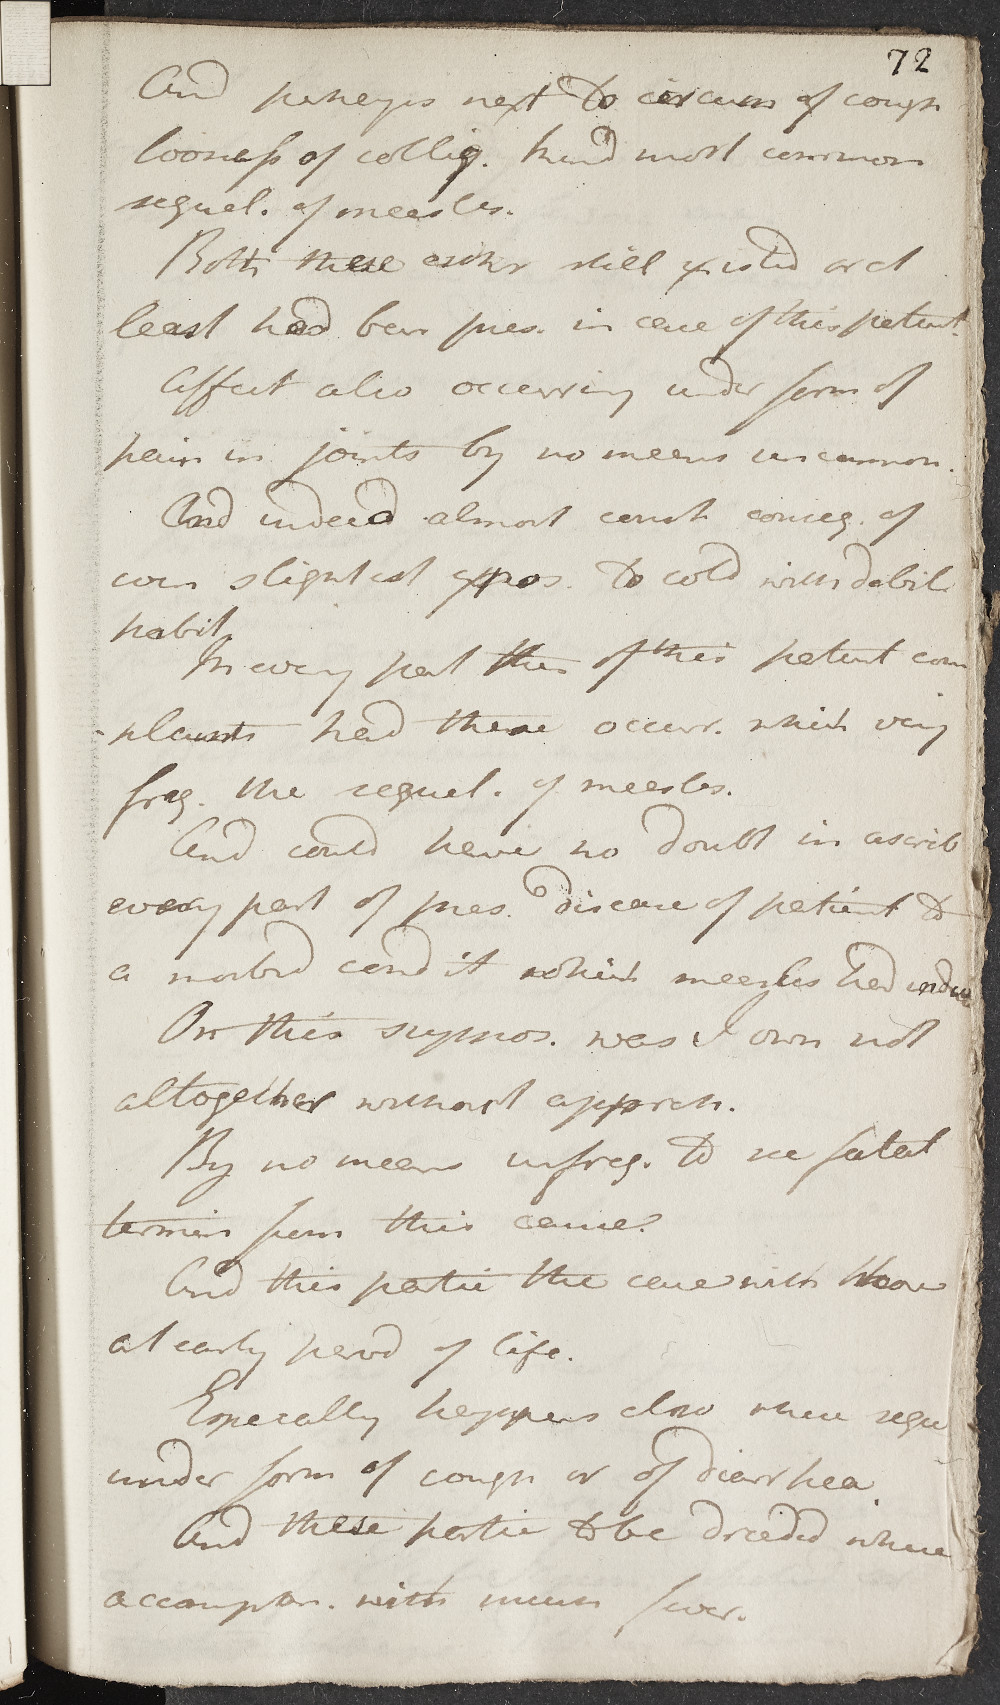 72
And perhaps next to circum of cough
looseness of colliq. kind most common
sequel. of measles.
Both these either still existed or at
least had been pres. in case of this patient.
Affect also occurring under form of
pain in joints by no means uncommon.
And indeed almost const. conseq. of
even slightest expos. to cold with debil
habit.
In every part of this patient com
plaints had there occurr. which very
freq. the sequel. of measles.
And could have no doubt in ascrib
every part of pres. disease of patient to
a morbid condit which measles had induc
On this suppos. was I own not
altogether without appreh.
By no means unfreq. to see fatal
termin from this cause.
And this partic the case with those
at early period of life.
Especally happens also where seque
under form of cough or of diarrhea
And these partic to be dreaded where
accompan. with much fever.